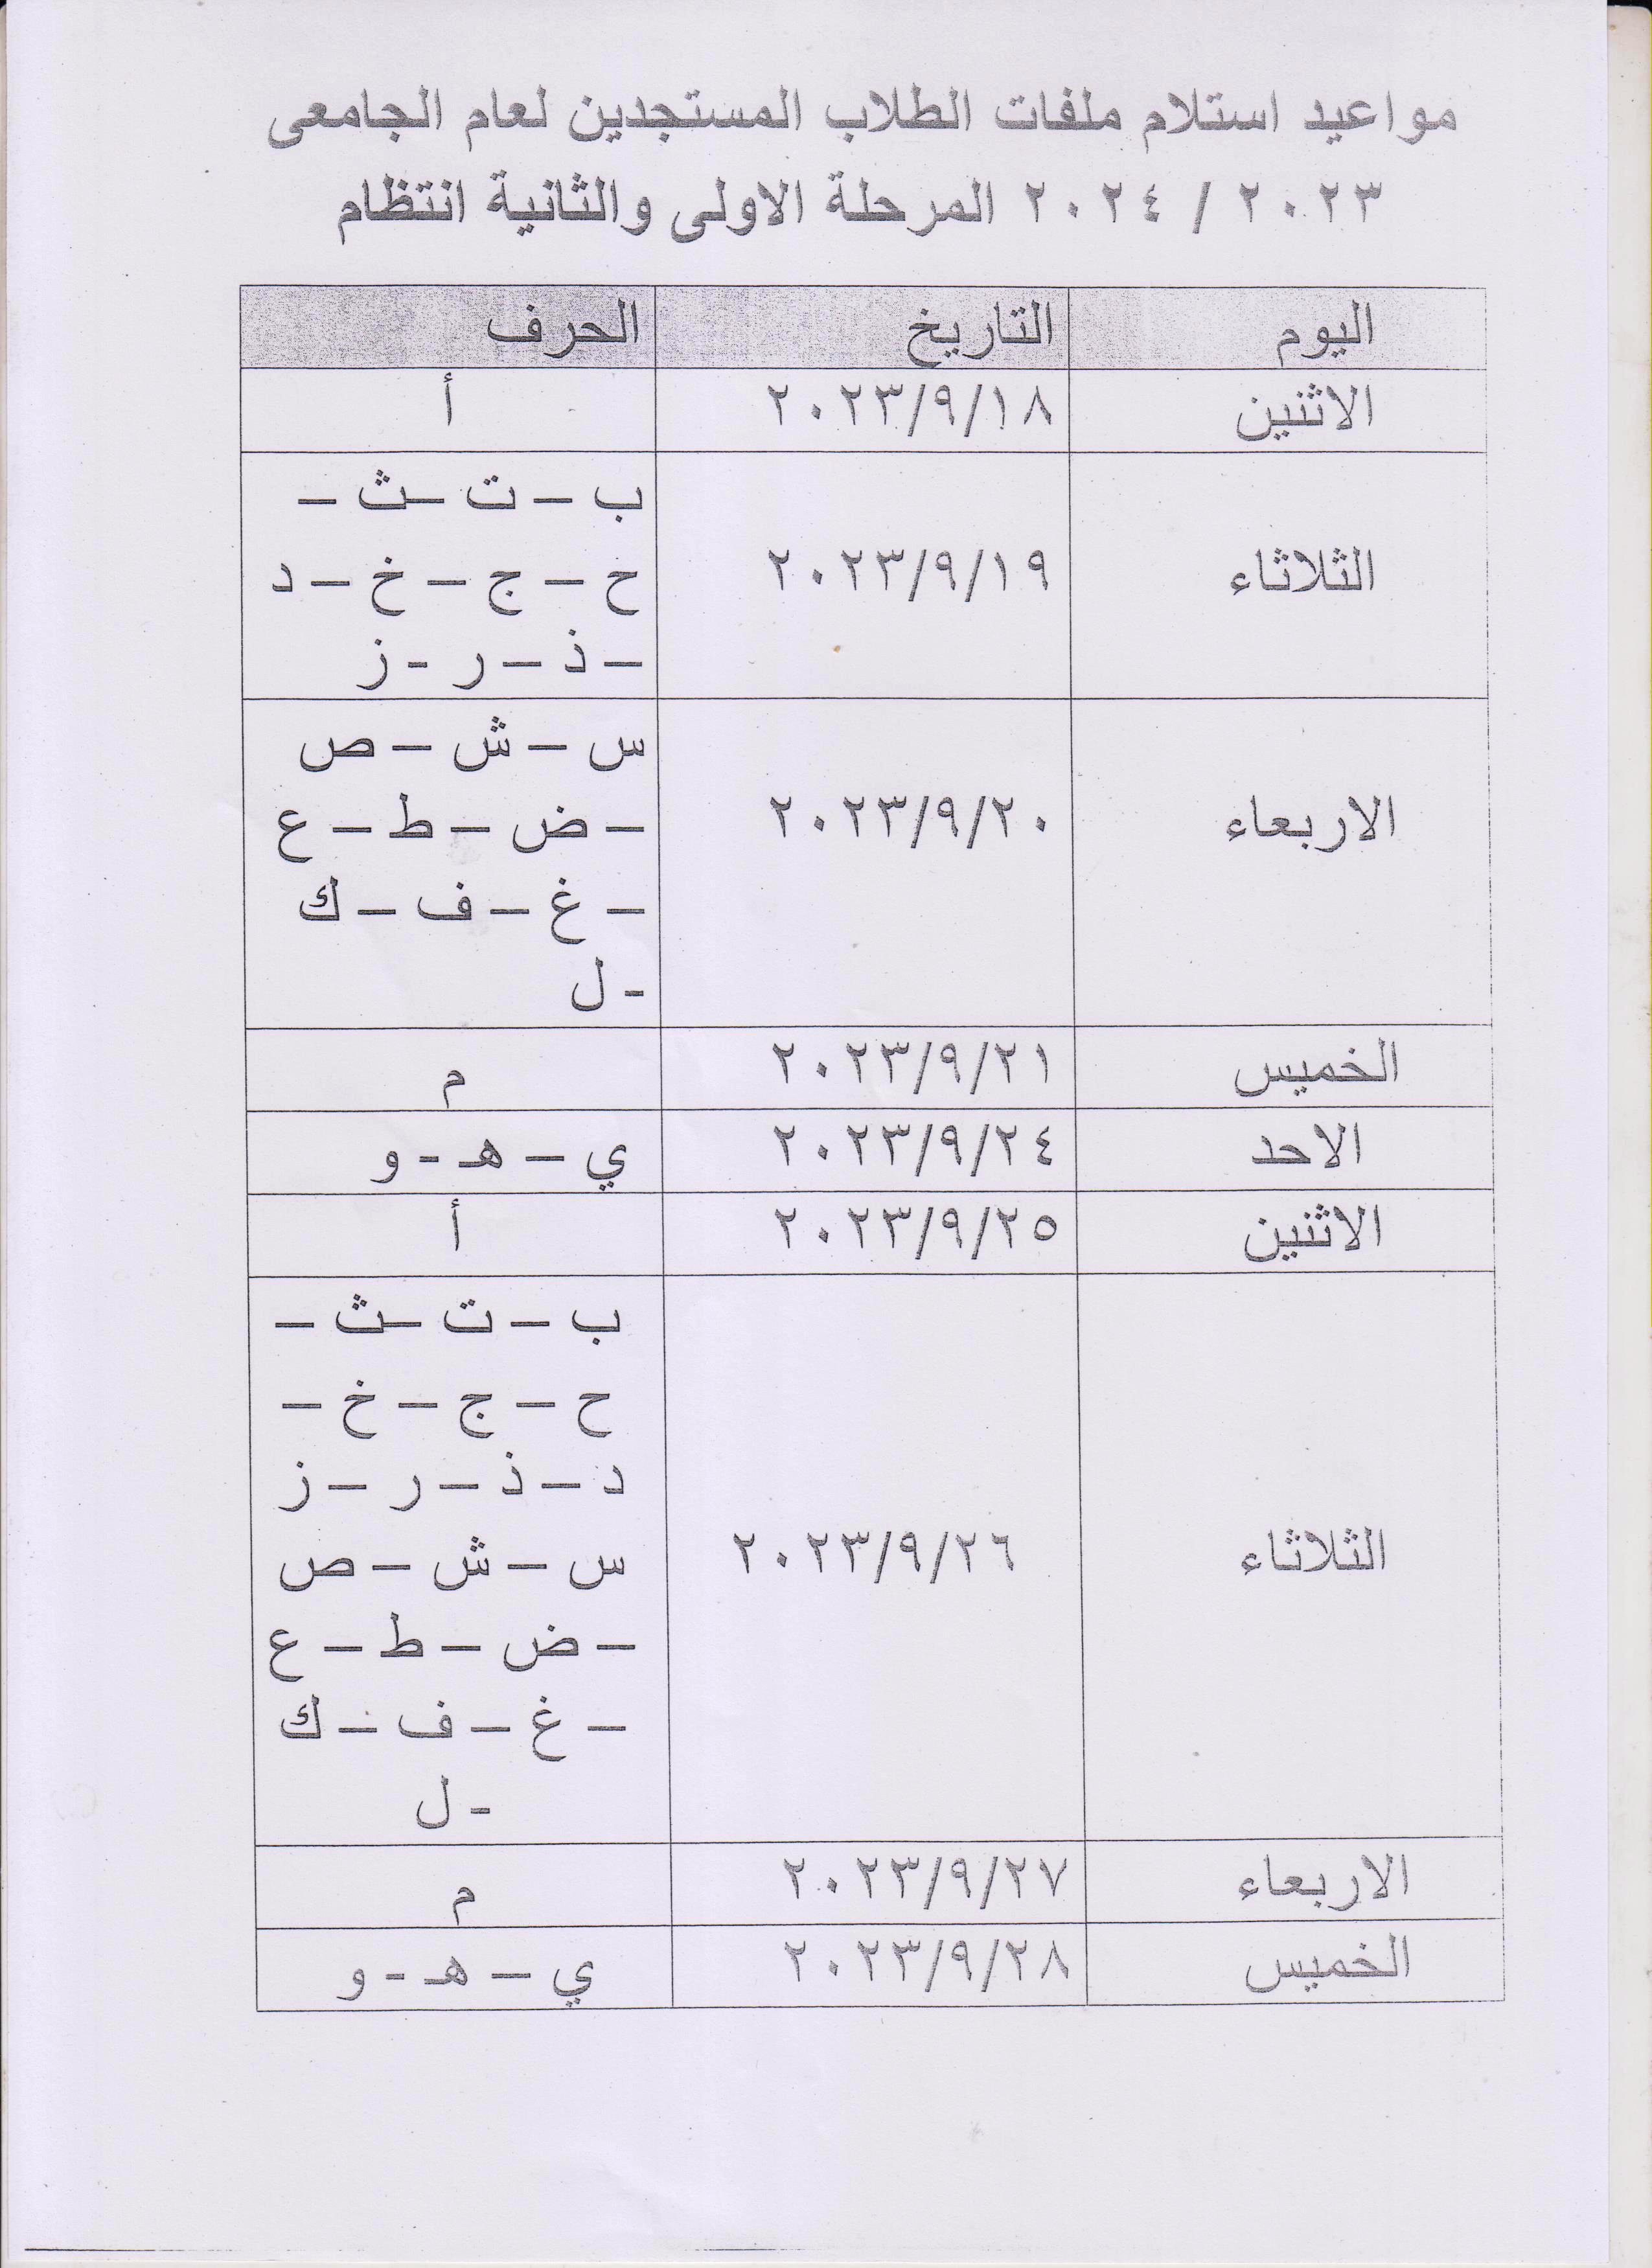 مواعيد استلام ملفات الطلاب المستجدين لعام الجامعى
٢٠٢٣ / ٢٠٢٤ المرحلة الاولى والثانية انتظام
اليوم التاريخ الحرف
الاثنين ٢٠٢٣/٩/١٨ أ
ب – ت – ث –
الثلاثاء ٢٠٢٣/٩/١٩ ح – ج – خ – د
– ذ – ر - ز
س – ش – ص
الاربعاء ٢٠٢٣/٩/٢٠ – ض – ط – ع
– غ – ف – ك
- ل
الخميس ٢٠٢٣/٩/٢١ م
الاحد ٢٠٢٣/٩/٢٤ ي – هـ - و
الاثنين ٢٠٢٣/٩/٢٥ أ
ب – ت – ث –
ح – ج – خ –
د – ذ – ر – ز
الثلاثاء ٢٠٢٣/٩/٢٦ س – ش – ص
– ض – ط – ع
– غ – ف – ك
- ل
الاربعاء ٢٠٢٣/٩/٢٧ م
الخميس ٢٠٢٣/٩/٢٨ ي – هـ - و